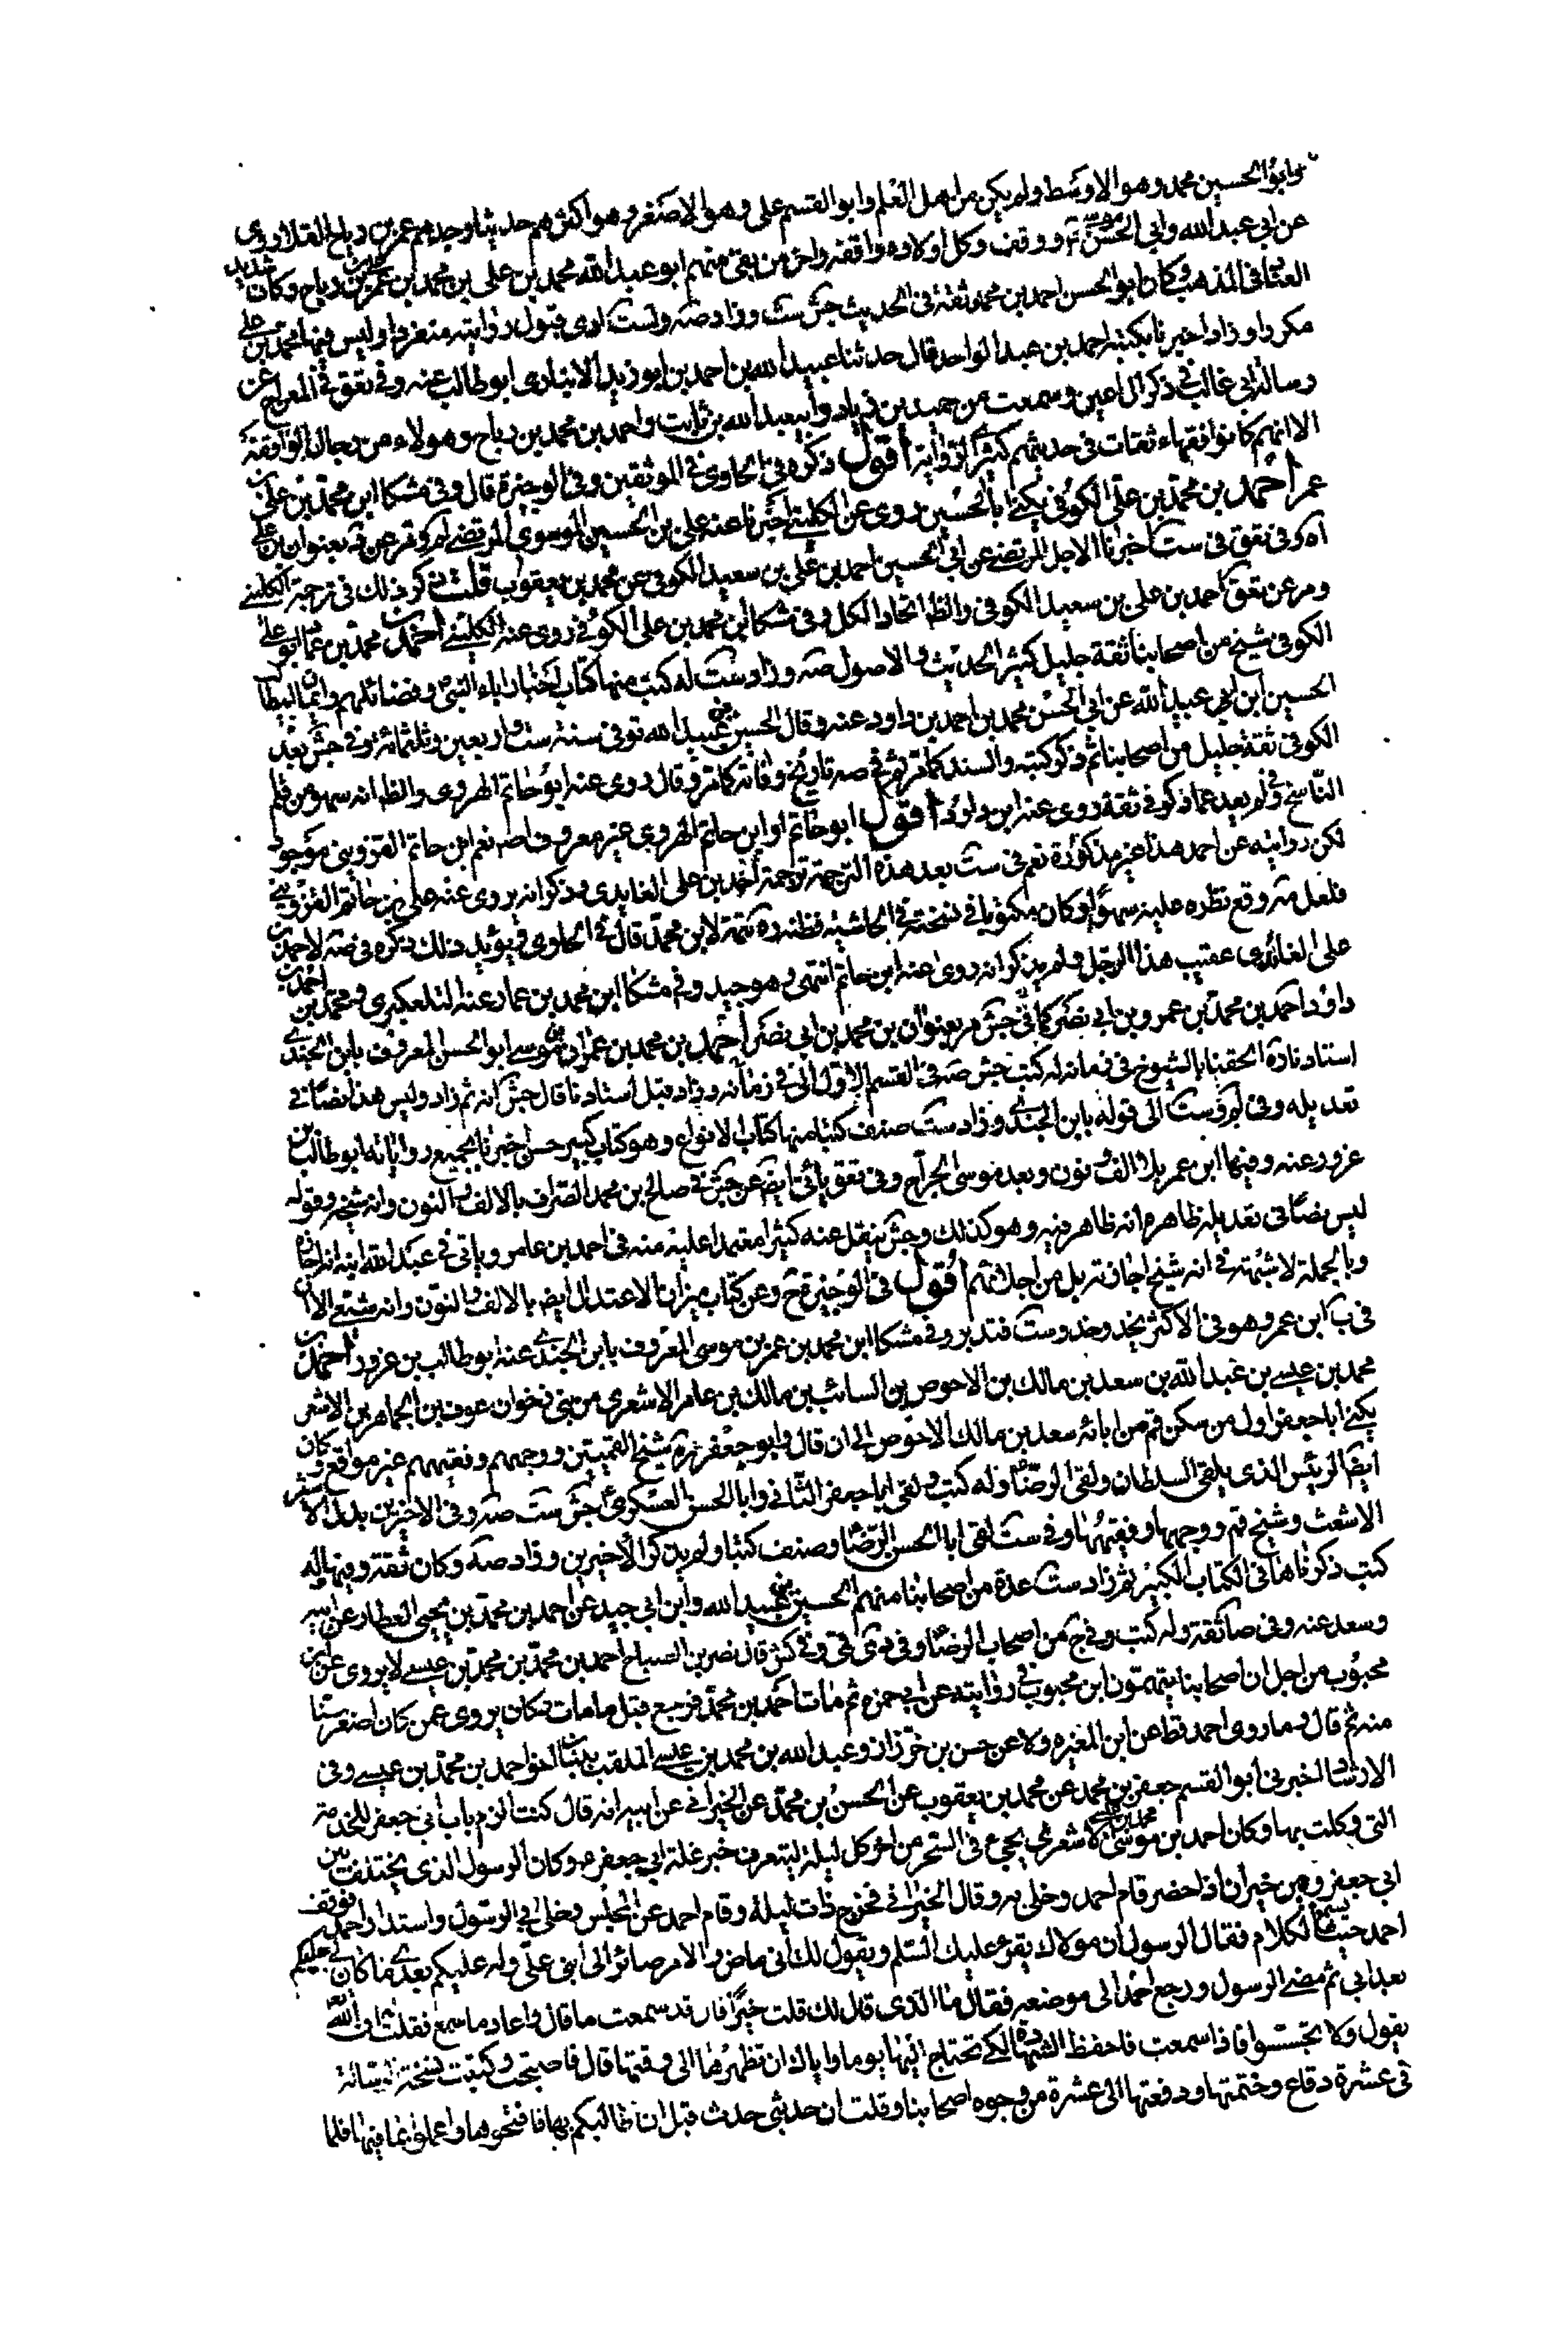 وابو الحسين محمد وهو الاوسط ولم يكن من اهل العلم وابو القسم على وهو الاصغر وهو اكثرهم حديثا وجدهم عمر بن رباح القلا روى
عن ابى عبد الله وابى الحسن موسى ع ووقف وكل اولاده واقفة واخر من بقى منهم ابو عبد الله محمد بن على بن محمد بن على بن عمر بن رباح وكان شديد
العناد فى المذهب وكان ابو الحسن احمد بن محمد ثقة فى الحديث جش ست وزاد صه ولست ارى قبول روايته منفردا وليس فيها محمد بن على
مكررا وزاد اخبرنا بكتبه احمد بن عبد الواحد قال حدثنا عبيد الله بن احمد بن ابو زيد الانبارى ابو طالب عنه وفى تعق فى المعراج عن
رسالة ابى غالب فى ذكر ال اعين وسمعت من حميد بن زياد وابى عبد الله بن ثابت واحمد بن محمد بن رباح وهولاء من رجال الواقفة
الا انهم كانوا فقهاء ثقات فى حديثهم كثيرى الرواية أقول ذكره فى الحاوى فى الموثقين وفى الوجيزة ق وفى مشكا ابن محمد بن على بن
عمر أحمد بن محمد بن على الكوفى يكنى ابا الحسين روى عن الكلينى اخبرنا عنه على بن الحسين الموسوى المرتضى لم ومر عن ق بعنوان بن على
اه وفى تعق فى ست اخبرنا الاجل المرتضى عن ابى الحسين احمد بن على بن سعيد الكوفى عن محمد بن يعقوب قلت ذكر ذلك فى ترجمة الكلينى
ومر عن تعق احمد بن على بن سعيد الكوفى والظ اتحاد الكل وفى مشكا ابن محمد بن على الكوفى روى عنه الكلينى أحمد بن محمد بن عمار ابو على
الكوفى شيخ من اصحابنا ثقة جليل كثير الحديث والاصول صه وزاد ست له كتب منها كتاب اخبار اباء النبى ص وفضائلهم وايمان ابيطالب
الحسين ابن ابى عبيد الله عن ابى الحسن محمد بن احمد بن داود عنه وقال الحسين بن عبيد الله توفى سنة ست واربعين وثلثمائة وفى جش بعد
الكوفى ثقة جليل من اصحابنا ثم ذكر كتبه والسند كما مر ثم فى صه تاريخ وفاته كما مر وقال روى عنه ابو حاتم الهروى والظ انه سهو من قلم
النساخ فى لم بعد عما ذكر فى ثقة روى عنه ابن داود أقول ابو حاتم او ابن حاتم الهروى غير معروف اصه نعم ابن حاتم القزوينى موجود
لكن روايته عن احمد هذا غير مذكورة نعم فى ست بعد هذه الترجمة ترجمة احمد بن على الفايدى وذكر انه يروى عنه على بن حاتم القزوينى
فلعل مه وقع نظره عليه سهوا او كان مكتوبا فى نسخته فى الحاشية فظنه ره تتمة لابن محمد قال فى الحاوى ويؤيد ذلك ذكره فى صه لاحمد بن
على الفائدى عقيب هذا الرجل ولم يذكر انه روى عنه ابن حاتم انتهى وهو جيد وفى مشكا ابن محمد بن عمار عنه التلعكبرى ومحمد بن احمد بن
داود احمد بن محمد بن عمرو بن ابى نصر كما فى جش مر بعنوان بن محمد بن ابى نصر أحمد بن محمد بن عمران بن موسى ابو الحسن المعروف بابن الجندى
استاد نا ره الحقنا بالشيوخ فى زمانه له كتب جش صه فى القسم الاول الى فى زمانه وزاد قبل استادنا قال جش انه ثم زاد وليس هذا نصا فى
تعديله وفى لم وست الى قوله بابن الجندى وزاد ست صنف كتبا منها كتاب الانواع وهو كتاب كبير حسن اخبرنا بجميع رواياته ابو طالب بن
غرور عنه وفيها ابن عمر بلا الف ونون وبعد موسى الجراح وفى تعق ياتى ايض عن جش فى صالح بن محمد الصرامى بالالف والنون وانه شيخه وقوله
ليس نصا فى تعديله ظاهره انه ظاهر فيه وهو كذلك وجش ينقل عنه كثيرا معتمدا عليه منه فى احمد بن عامر وياتى فى عبد الله ابنه انه اجازه
وبالجملة لا شبهة فى انه شيخ اجازته بل من اجلائهم أقول فى الوجيزة ح وعن كتاب ميزان الاعتدال ايض بالالف والنون وانه شيعى الا ان
فى ب ابن عمر وهو فى الاكثر يحذو حذو ست فتدبر وفى مشكا ابن محمد بن عمر بن موسى المعروف بابن الجندى عنه ابو طالب بن غرور أحمد بن
محمد بن عيسى بن عبد الله بن سعد بن مالك بن الاحوص بن السائب بن مالك بن عامر الاشعرى من بنى ذخوان عوف بن الجماهر بن الاشعر
يكنى ابا جعفر اول من سكن قم من ابائه سعد بن مالك الاحوص الى ان قال وابو جعفر ره شيخ القميين ووجههم وفقيههم غير مدافع وكان
ايض الرئيس الذى يلقى السلطان ولقى الرضا ع وله كتب ولقى ابا جعفر الثانى وابا الحسن العسكرى ع جش ست صه وفى الاخيرين بدل الاشعر
الاشعث وشيخ قم ووجهها وفقيهها وفى ست لقى ابا الحسن الرضا ع وصنف كتبا ولم يذكر الاخيرين وزاد صه وكان ثقة وفيها وله
كتب ذكرناها فى الكتاب الكبير ثم زاد ست عدة من اصحابنا منهم الحسين بن عبيد الله وابن ابى جيد عن احمد بن محمد بن يحيى العطار عن ابيه
وسعد عنه وفى ضا ثقة وله كتب وفى ج من اصحاب الرضا ع وفى دى قى وفى كش قال نصر بن الصباح احمد بن محمد بن عيسى لا يروى عن ابن
محبوب من اجل ان اصحابنا يتهمون ابن محبوب فى روايته عن ابى حمزه ثم مات احمد بن محمد فرجع قبل ما مات وكان يروى عمن كان اصغر سنا
منه ثم قال وما روى احمد قط عن ابن المغيره ولا عن حسن بن خرزاذ وعبد الله بن محمد بن عيسى الملقب ببنان اخو احمد بن محمد بن عيسى وفى
الارشاد اخبرنى ابو القسم جعفر بن محمد عن محمد بن يعقوب عن الحسن بن محمد عن الخيرانى عن ابيه انه قال كنت الزم باب ابى جعفر للخدمة
التى وكلت بها وكان احمد بن محمد بن عيسى الاشعرى يجىء فى السحر من اخر كل ليلة ليتعرف خبر علة ابى جعفر ع وكان الرسول الذى يختلف بين
ابى جعفر وبين خيران اذا حضر قام احمد وخلى به وقال الخيرانى فخرج ذات ليلة وقام احمد عن المجلس وخلى ابى الرسول واستدار احمد فوقف
احمد حيث يسمع الكلام فقال الرسول ان مولاك يقرء عليك السلم ويقول لك انى ماض والامر صائر الى ابنى على وله عليكم بعدى ما كان لى عليكم
بعد ابى ثم مضى الرسول ورجع احمد الى موضعه فقال ما الذى قال لك قلت خيرا قال قد سمعت ما قال واعاد ما سمع فقلت ان الله
يقول ولا تجسسوا فاذا سمعت فاحفظ الشهادة لكى تحتاج اليها يوما واياك ان تظهرها الى وقتها قال فاصبحت وكتبت نسخة الرسالة
فى عشرة رقاع وختمتها ودفعتها الى عشرة من وجوه اصحابنا وقلت ان حدث بى حدث قبل ان اطالبكم بها فافتحوها واعملوا بما فيها فلما